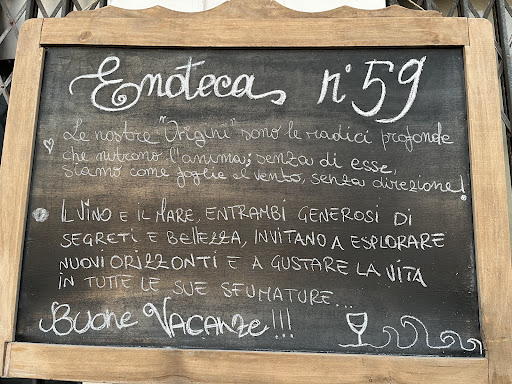 Enoteca n° 59
Le nostre "Origini" sono le radici profonde
che nutrono l'anima; senza di esse,
siamo come foglie al vento, senza direzione!
IL VINO E IL MARE, ENTRAMBI GENEROSI DI
SEGRETI E BELLEZZA, INVITANO A ESPLORARE
NUOVI ORIZZONTI E A GUSTARE LA VITA
IN TUTTE LE SUE SFUMATURE...
BUONE VACANZE!!!